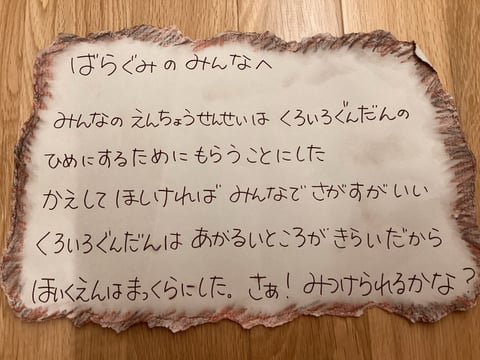 ばらぐみの みんなへ
みんなの えんちょうせんせいは くろいろぐんだんの
ひめにするために もらうことにした
かえして ほしいければ みんなで さがすがいい
くろいろぐんだんは あかるいところが きらいだから
ほいくえんは まっくらにした。 さぁ! みつけられるかな?